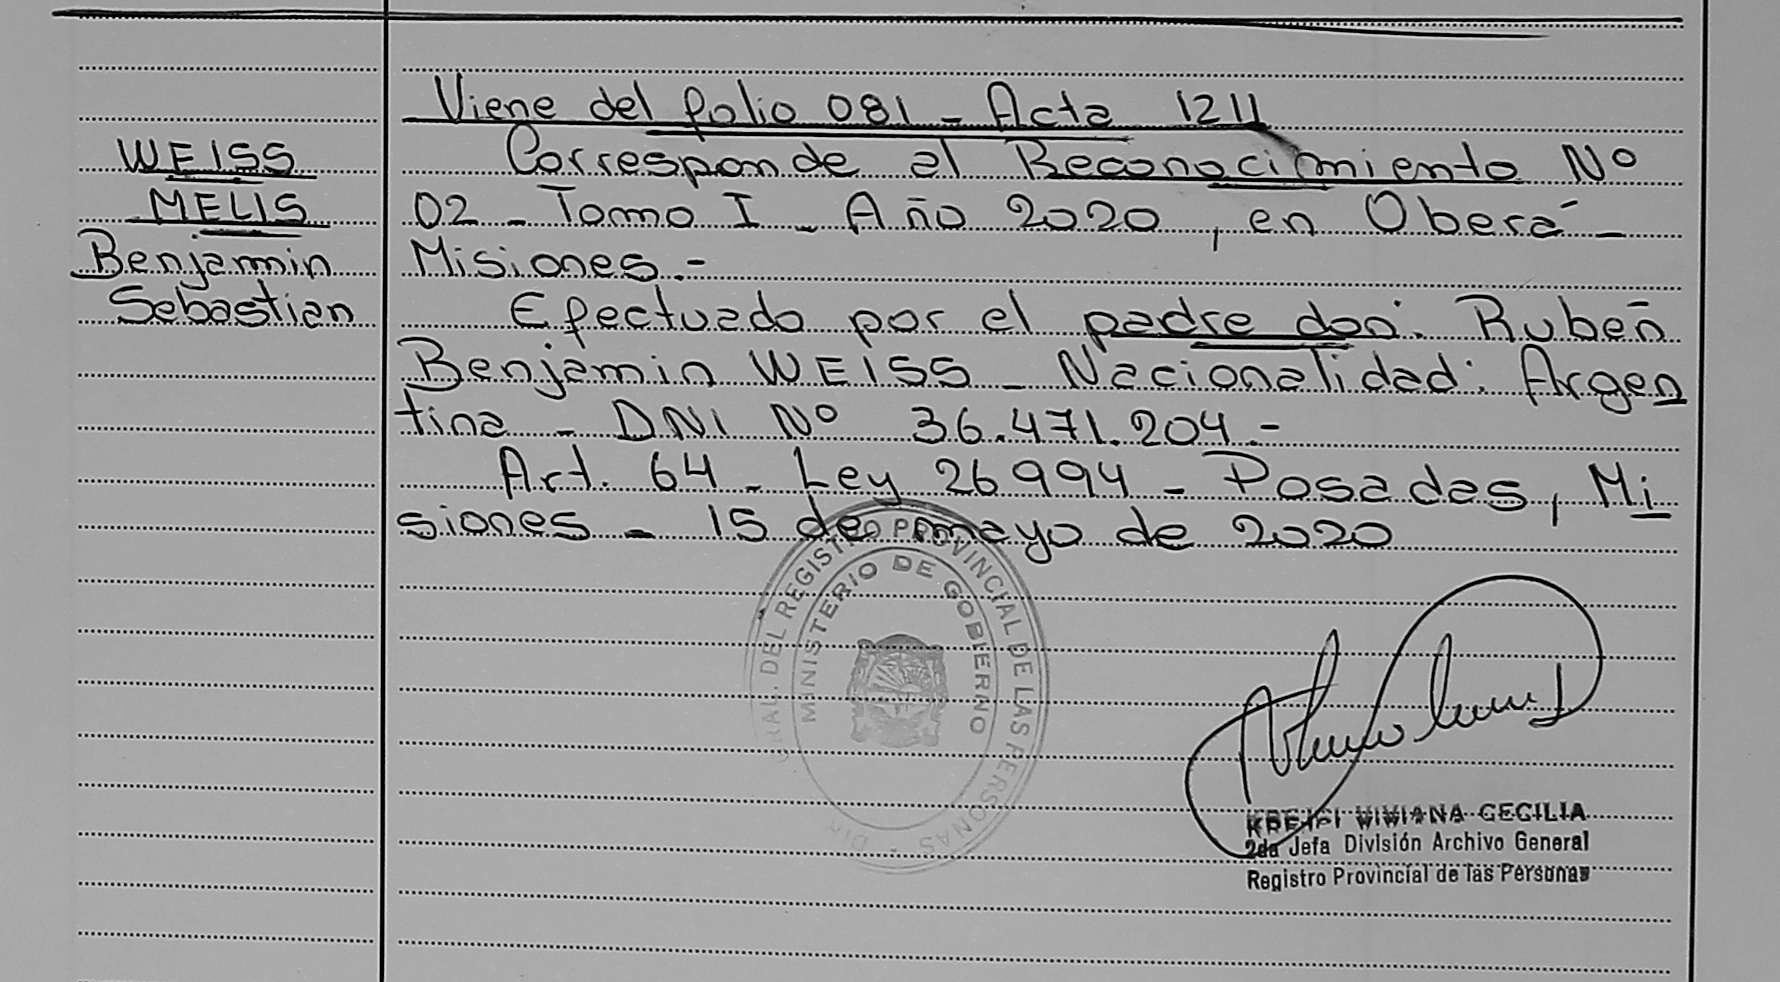 Viene del folio 081 - Acta 1211
WEISS
MELIS
Benjamin
Sebastian
Corresponde al Reconocimiento Nº
02 - Tomo I - Año 2020, en Oberá -
Misiones.-
Efectuado por el padre don: Rubén
Benjamin WEISS - Nacionalidad: Argen
tina - DNI Nº 36.471.204.-
Art. 64 - Ley 26994 - Posadas, Mi
siones - 15 de mayo de 2020
GRAL. DEL REGISTRO PROVINCIAL DE LAS PERSONAS • DIR
MINISTERIO DE GOBIERNO
VIVIANA CECILIA
2da Jefa División Archivo General
Registro Provincial de las Personas